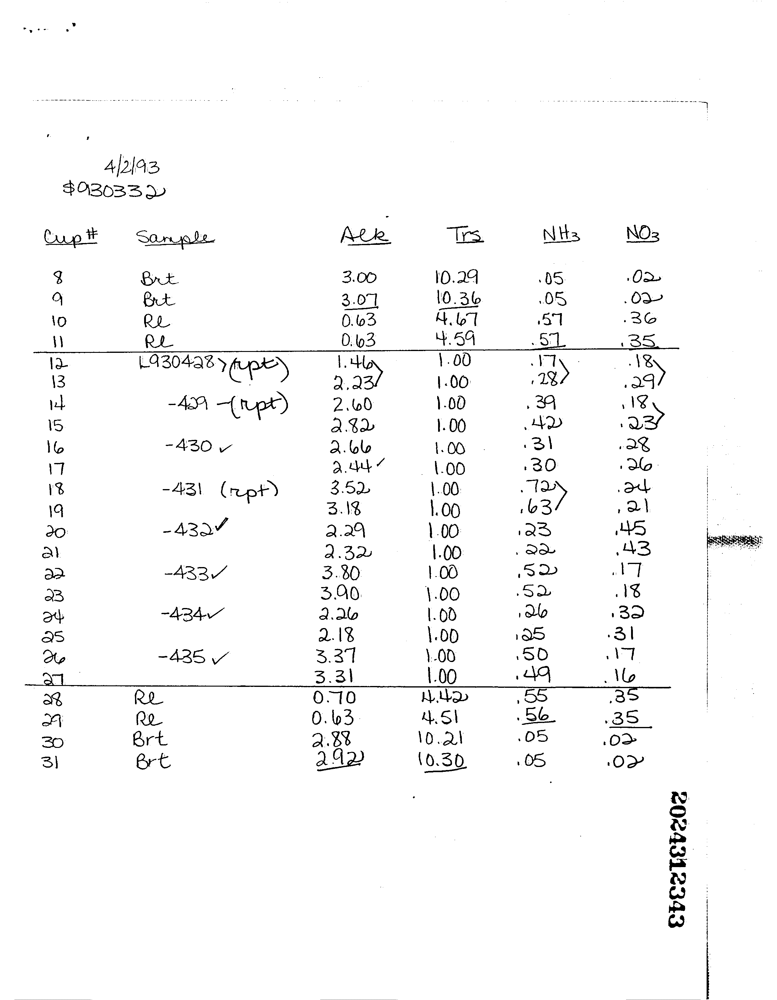 4/2/93
$930332
Cup# Sample Alk Trs NH3 NO3
8 Brt 3.00 10.29 .05 .02
9 Brt 3.07 10.36 .05 .02
10 Re 0.63 4.67 .57 .36
11 Re 0.63 4.59 .57 .35
12 L930428 > (rpt) 1.46 1.00 .17 .18
13 2.23 1.00 .28 .29
14 -429 - (rpt) 2.60 1.00 .39 .18
15 2.82 1.00 .42 .23
16 -430 ✓ 2.66 1.00 .31 .28
17 2.44 ✓ 1.00 .30 .26
18 -431 (rpt) 3.52 1.00 .72 .24
19 3.18 1.00 .63 .21
20 -432 ✓ 2.29 1.00 .23 .45
21 2.32 1.00 .22 .43
22 -433 ✓ 3.80 1.00 .52 .17
23 3.90 1.00 .52 .18
24 -434 ✓ 2.26 1.00 .26 .32
25 2.18 1.00 .25 .31
26 -435 ✓ 3.37 1.00 .50 .17
27 3.31 1.00 .49 .16
28 Re 0.70 4.42 .55 .35
29 Re 0.63 4.51 .56 .35
30 Brt 2.88 10.21 .05 .02
31 Brt 2.92 10.30 .05 .02
2024312343